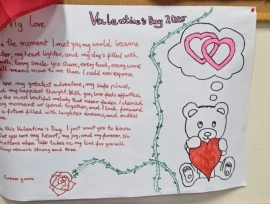 My Love
Valentine's Day
the moment I met you, my world became
my heart lighter, and my day's filled with
Every smile you share, every touch, every word
means more to me than I could ever express.
my greatest adventure, my safe place,
my happiest thought. With you, love feels effortless,
the most beautiful melody that never fades. I cherish
moment we spend together, and I look forward
a future filled with laughter, dreams, and endless
this Valentine's Day, I just want you to know
that you are my heart, my joy, and my forever. No
matter where life takes us, my love for you will
always remain strong and true.
Forever yours